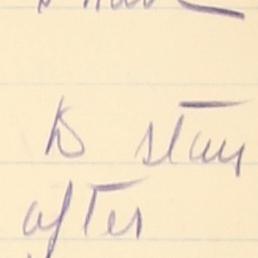 to stay
after